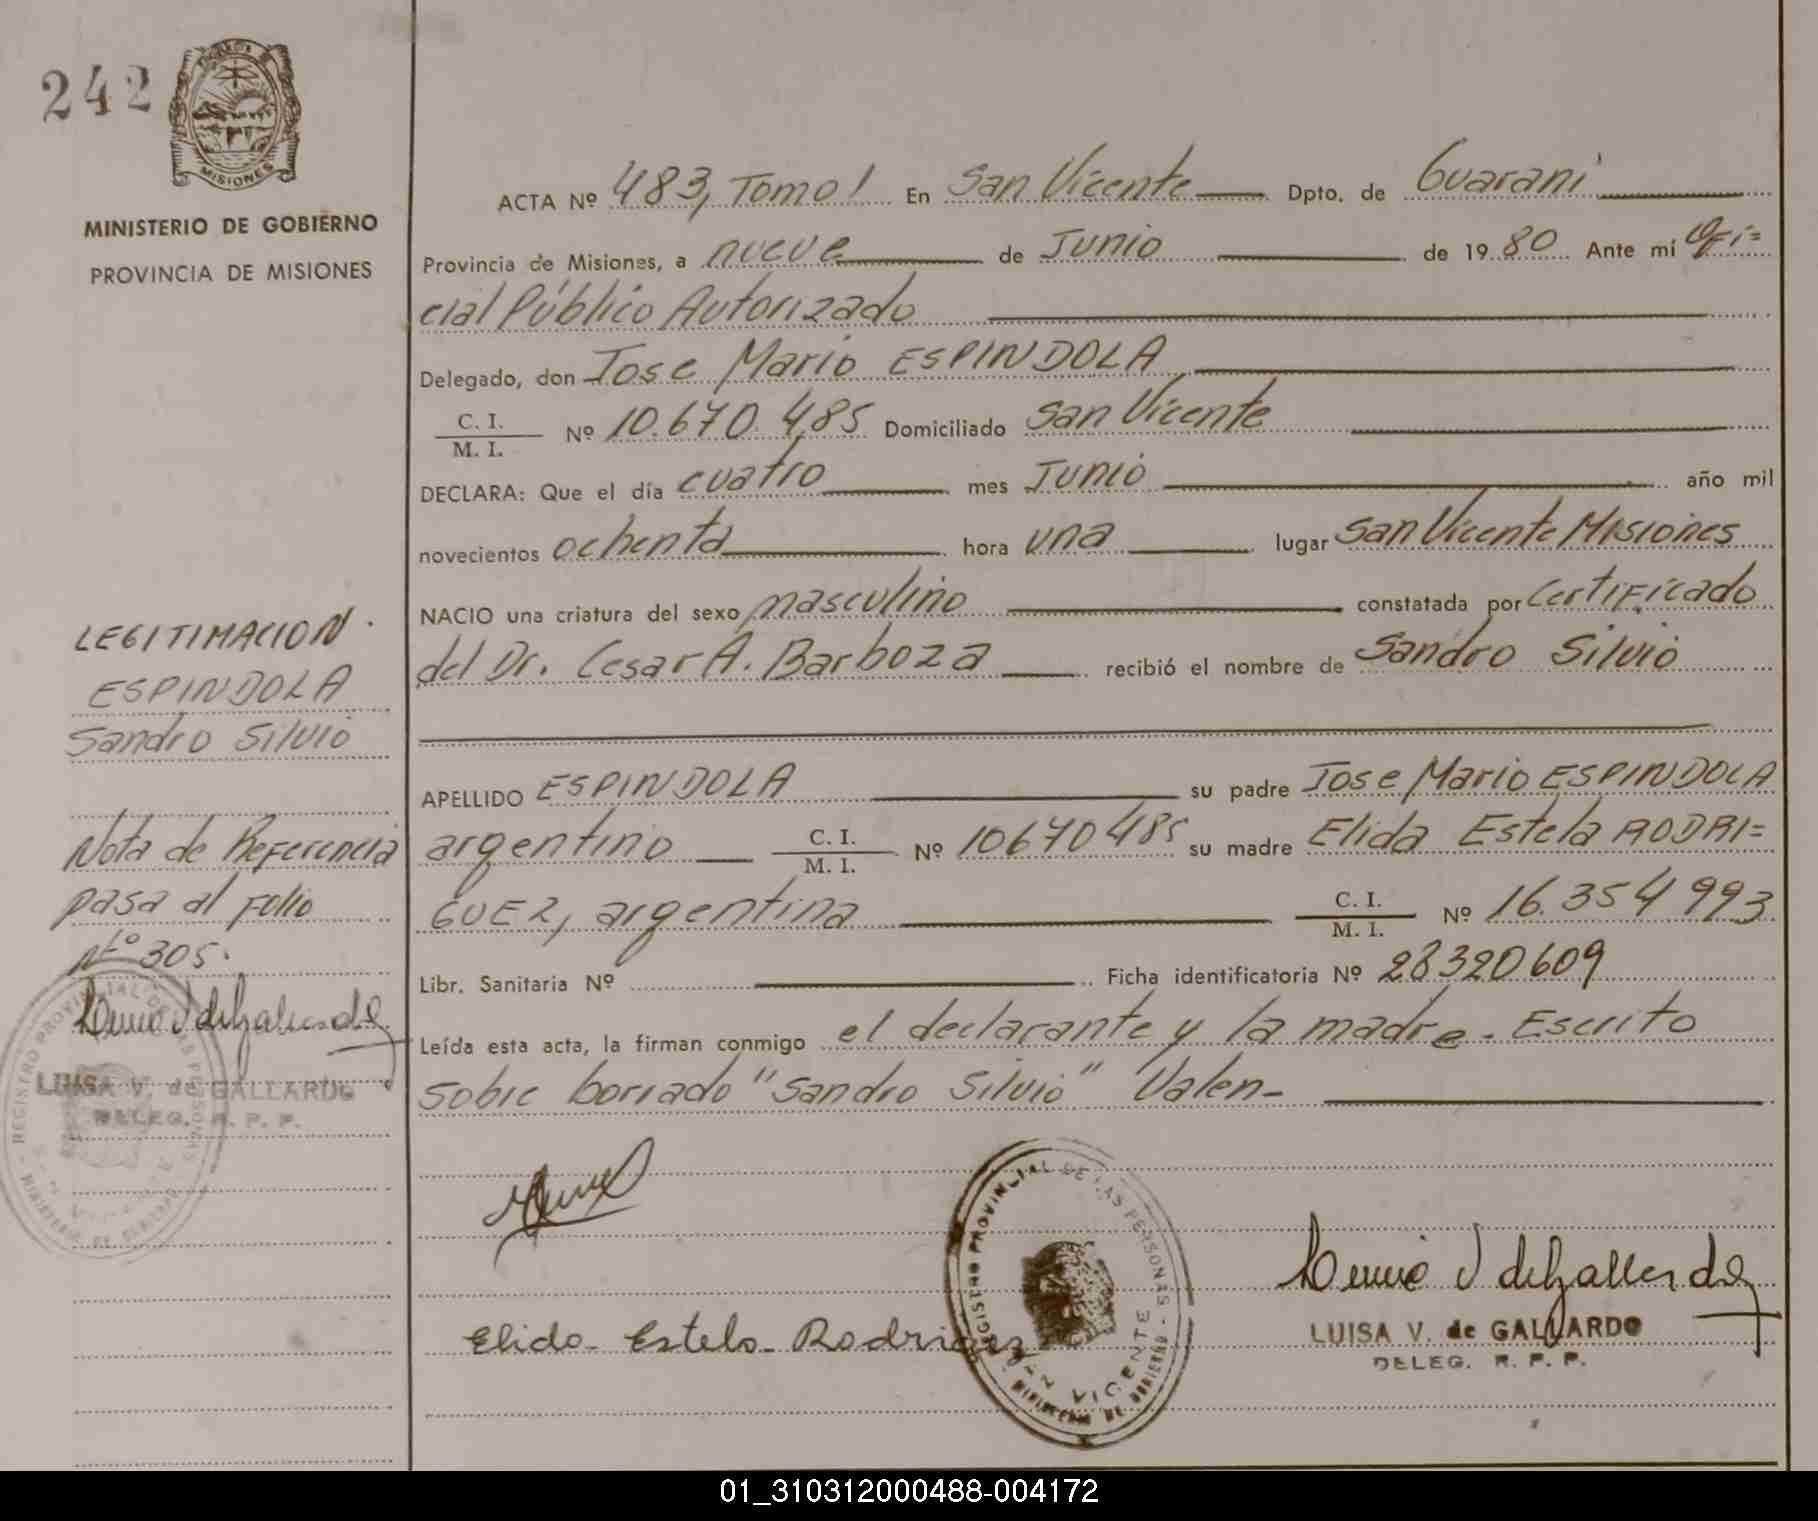 242
MISIONES
MINISTERIO DE GOBIERNO
PROVINCIA DE MISIONES
LEGITIMACION.
ESPINDOLA
Sandro Silvio
Nota de Referencia
pasa al Folio
Nº 305.
LUISA V. de GALLARDO
DELEG. R. P. P.
ACTA Nº 483, Tomo I En San Vicente Dpto. de Guarani
Provincia de Misiones, a nueve de Junio de 1980 Ante mí Ofi=
cial Público Autorizado
Delegado, don Jose Mario ESPINDOLA
C. I.
M. I. Nº 10.670.485 Domiciliado San Vicente
DECLARA: Que el día cuatro mes Junio año mil
novecientos ochenta hora una lugar San Vicente Misiones
NACIO una criatura del sexo masculino constatada por Certificado
del Dr. Cesar A. Barboza recibió el nombre de Sandro Silvio
APELLIDO ESPINDOLA su padre Jose Mario ESPINDOLA
argentino C. I.
M. I. Nº 10670485 su madre Elida Estela RODRI=
GUEZ, argentina C. I.
M. I. Nº 16.354993
Libr. Sanitaria Nº Ficha identificatoria Nº 28320609
Leída esta acta, la firman conmigo el declarante y la madre - Escrito
sobre borrado "Sandro Silvio" Valen-
Elida Estela Rodriguez
REGISTRO PROVINCIAL DE LAS PERSONAS
SAN VICENTE
MINISTERIO DE GOBIERNO
LUISA V. de GALLARDO
DELEG. R. P. P.
01_310312000488-004172